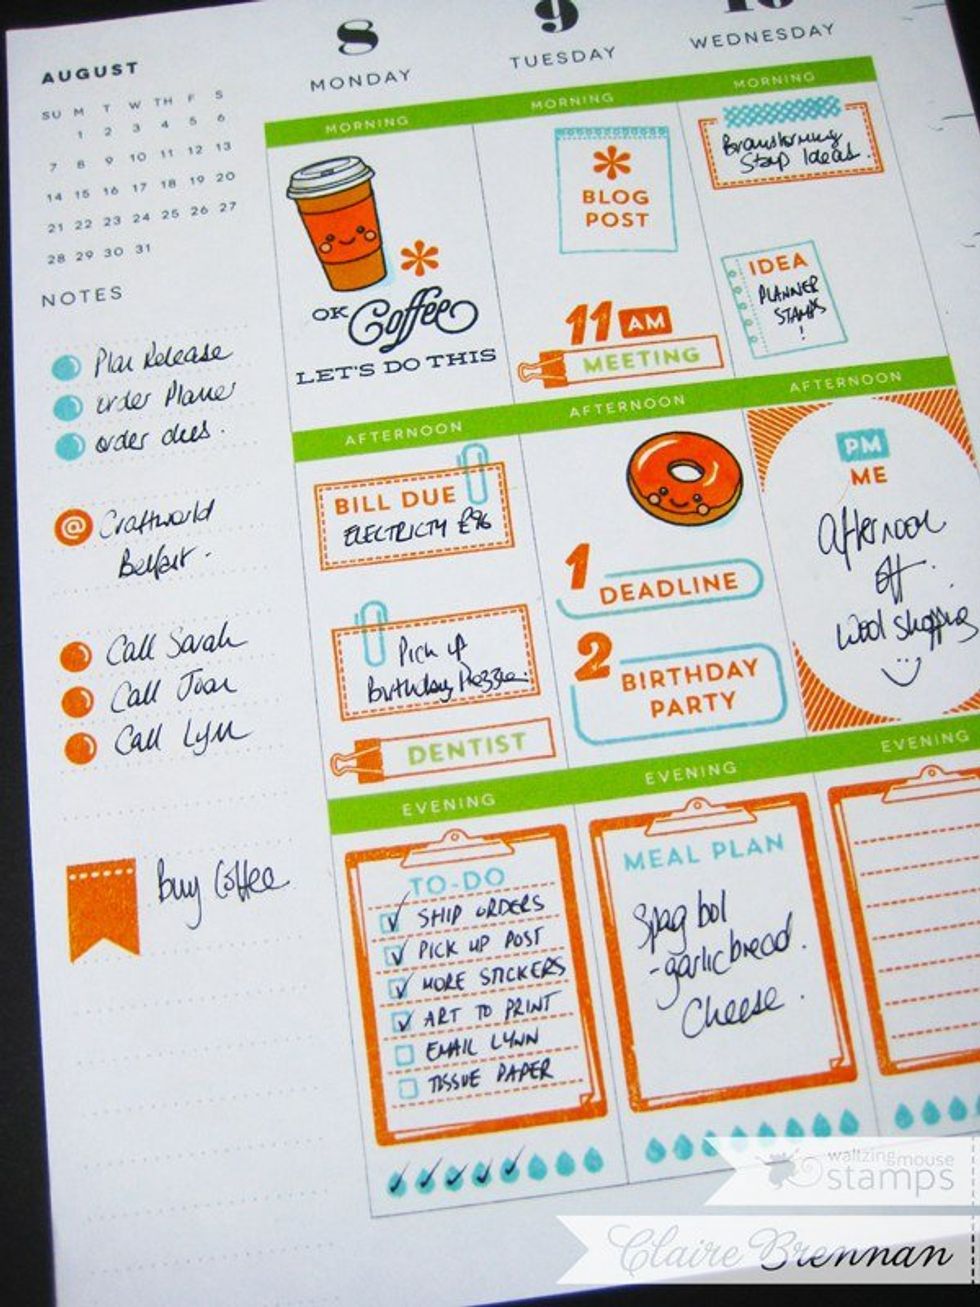 AUGUST
SU M T W TH F S
1 2 3 4 5 6
7 8 9 10 11 12 13
14 15 16 17 18 19 20
21 22 23 24 25 26 27
28 29 30 31
NOTES
Plan Release
order Planner
order dies.
@ Craftworld
Belfast.
Call Sarah
Call Joan
Call Lynn
Buy Coffee
8
MONDAY
MORNING
OK Coffee
LET'S DO THIS
AFTERNOON
BILL DUE
ELECTRICTY £96
Pick up
Birthday
DENTIST
EVENING
TO-DO
SHIP ORDERS
PICK UP POST
MORE STICKERS
ART TO PRINT
EMAIL LYNN
TISSUE PAPER
9
TUESDAY
MORNING
BLOG
POST
11 AM
MEETING
AFTERNOON
1 DEADLINE
2 BIRTHDAY
PARTY
EVENING
MEAL PLAN
Spag bol
-garlic bread.
Cheese.
10
WEDNESDAY
MORNING
Brainstorming
Stamp Ideas.
IDEA
PLANNER
STAMPS
!
AFTERNOON
PM
ME
afternoon
off.
Wool shopping
EVENING
waltzingmouse
stamps
Claire Brennan